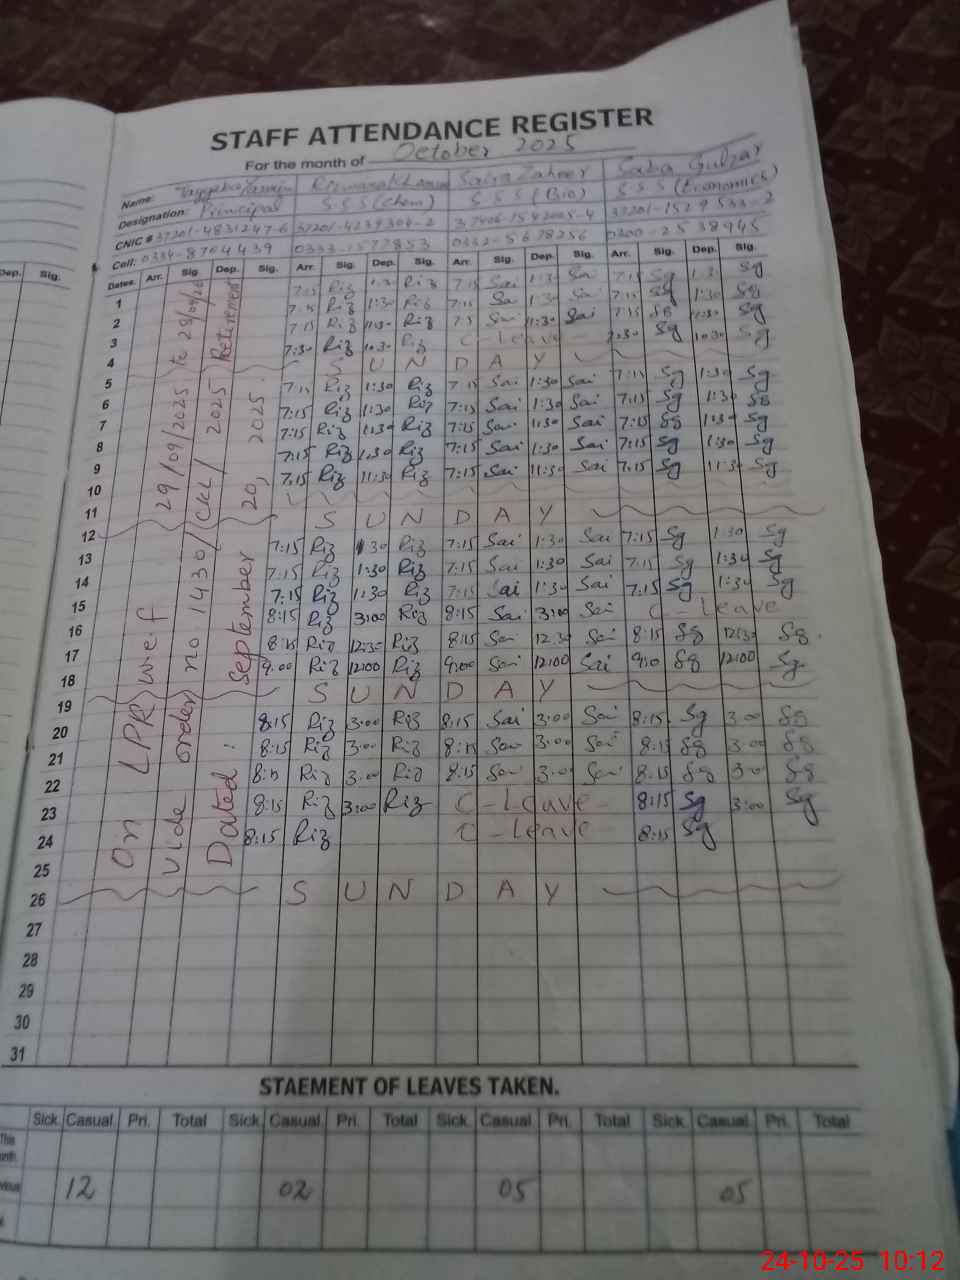 STAFF ATTENDANCE REGISTER
For the month of October 2025
Name: Rizwana Saira Zaheer Saba Gulzar
Designation: Principal S S S (Chem) S S S (Bio) S S S (Economics)
CNIC # 37201-4831247-6 37201-4239304-2 37406-1542005-4 37201-1529533-2
Cell: 0334-8704439 0333-1577853 0332-5678256 0300-2538945
Dep. Sig. Dates. Arr. Sig. Dep. Sig. Arr. Sig. Dep. Sig. Arr. Sig. Dep. Sig. Arr. Sig. Dep. Sig.
On LPR w.e.f 29/09/2025 to
vide order no 1430/CKL/2025 Retirement
Dated: September 20, 2025.
1 7:15 Riz 1:30 Riz 7:15 Sai 1:30 Sai 7:15 Sg 1:30 Sg
2 7:15 Riz 1:30 Riz 7:15 Sai 1:30 Sai 7:15 Sg 1:30 Sg
3 7:15 Riz 11:30 Riz 7:15 Sai 11:30 Sai 7:15 Sg 11:30 Sg
4 7:30 Riz 10:30 Riz C-Leave 7:30 Sg 10:30 Sg
5 S U N D A Y
6 7:15 Riz 1:30 Riz 7:15 Sai 1:30 Sai 7:15 Sg 1:30 Sg
7 7:15 Riz 1:30 Riz 7:15 Sai 1:30 Sai 7:15 Sg 1:30 Sg
8 7:15 Riz 1:30 Riz 7:15 Sai 1:30 Sai 7:15 Sg 1:30 Sg
9 7:15 Riz 1:30 Riz 7:15 Sai 1:30 Sai 7:15 Sg 1:30 Sg
10 7:15 Riz 11:30 Riz 7:15 Sai 11:30 Sai 7:15 Sg 11:30 Sg
11
12 S U N D A Y
13 7:15 Riz 1:30 Riz 7:15 Sai 1:30 Sai 7:15 Sg 1:30 Sg
14 7:15 Riz 1:30 Riz 7:15 Sai 1:30 Sai 7:15 Sg 1:30 Sg
15 7:15 Riz 1:30 Riz 7:15 Sai 1:30 Sai 7:15 Sg 1:30 Sg
16 8:15 Riz 3:00 Riz 8:15 Sai 3:00 Sai C-Leave
17 8:15 Riz 12:30 Riz 8:15 Sai 12:30 Sai 8:15 Sg 12:30 Sg
18 9:00 Riz 12:00 Riz 9:00 Sai 12:00 Sai 9:00 Sg 12:00 Sg
19 S U N D A Y
20 8:15 Riz 3:00 Riz 8:15 Sai 3:00 Sai 8:15 Sg 3:00 Sg
21 8:15 Riz 3:00 Riz 8:15 Sai 3:00 Sai 8:15 Sg 3:00 Sg
22 8:15 Riz 3:00 Riz 8:15 Sai 3:00 Sai 8:15 Sg 3:00 Sg
23 8:15 Riz 3:00 Riz C-Leave 8:15 Sg 3:00 Sg
24 8:15 Riz C-Leave 8:15 Sg
25
26 S U N D A Y
27
28
29
30
31
STAEMENT OF LEAVES TAKEN.
Sick. Casual. Pri. Total Sick. Casual. Pri. Total Sick. Casual. Pri. Total Sick. Casual. Pri. Total
This
12 02 05 05
24-10-25 10:12